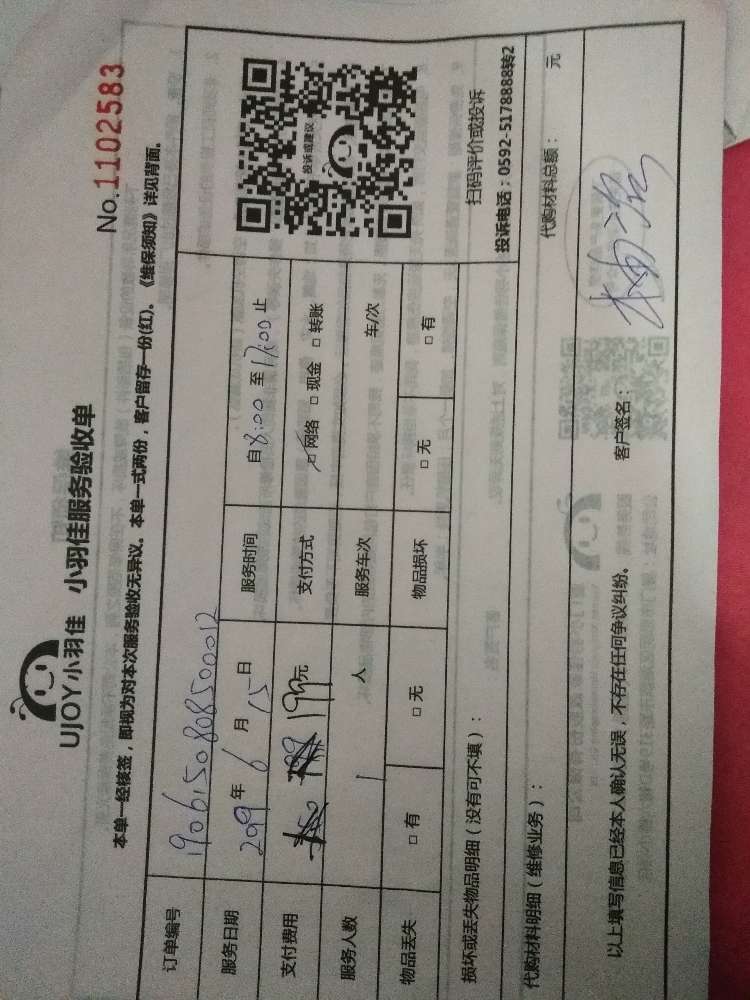 UJOY小羽佳 小羽佳服务验收单
No.1102583
本单一经核签，即视为对本次服务验收无异议。本单一式两份，客户留存一份(红)。《维保须知》详见背面。
订单编号 190615080850012
投诉或建议
服务日期 2019年 6 月 15 日 服务时间 自8:00 至 17:00 止
支付费用 199元 支付方式 □网络 □现金 □转账
服务人数 1 人 服务车次 车/次
物品丢失 □有 □无 物品损坏 □无 □有
扫码评价或投诉
损坏或丢失物品明细（没有可不填）：
投诉电话：0592-5178888转2
代购材料明细（维修业务）： 代购材料总额： 元
以上填写信息已经本人确认无误，不存在任何争议纠纷。 客户签名：